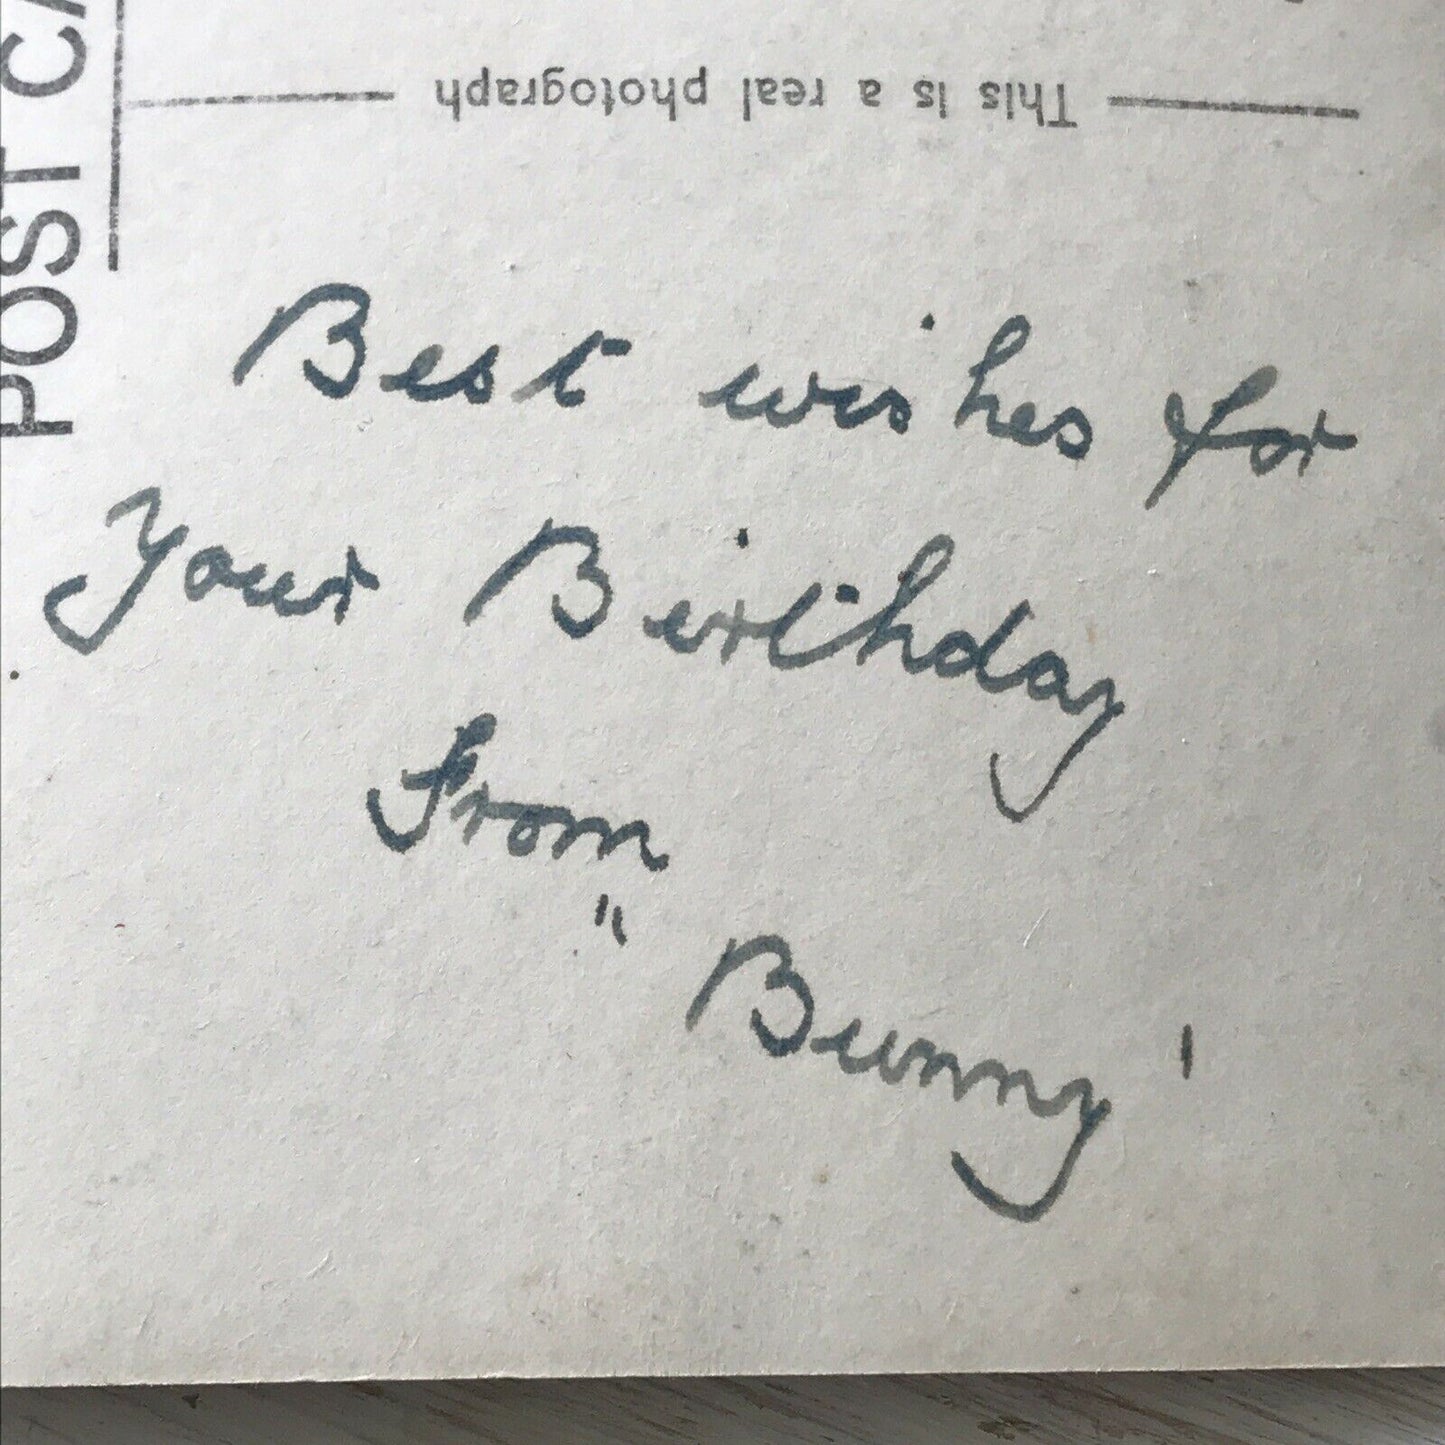 POST CA
This is a real photograph
Best wishes for
your Birthday
from
" Bunny '